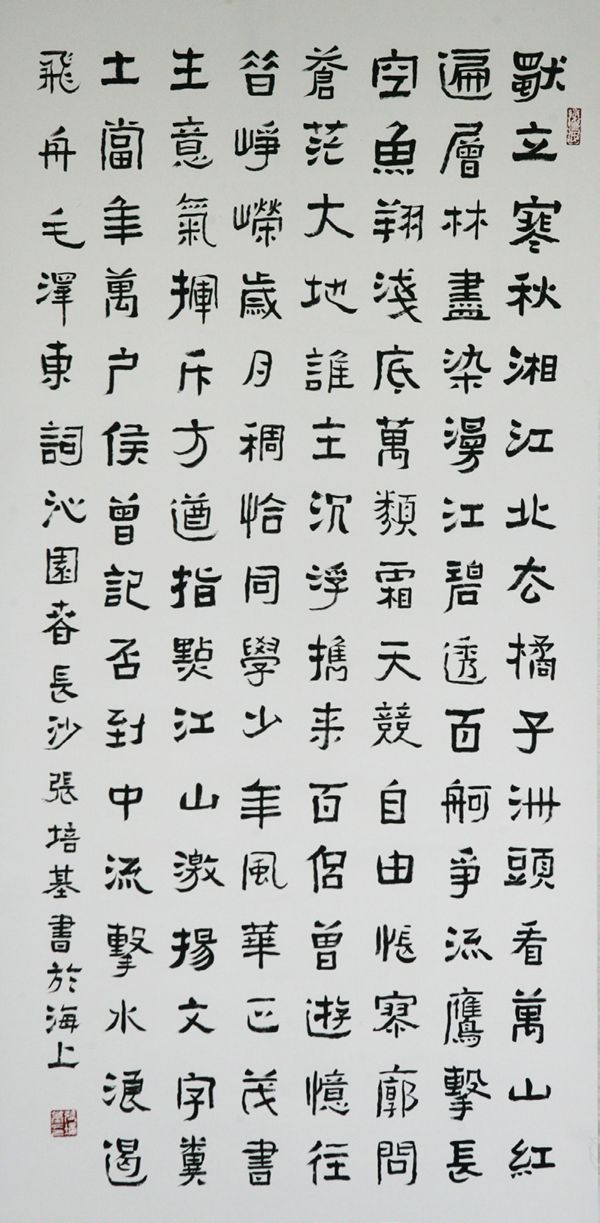 獨立寒秋湘江北去橘子洲頭看萬山紅
遍層林盡染漫江碧透百舸爭流鷹擊長
空魚翔淺底萬類霜天競自由悵寥廓問
蒼茫大地誰主沉浮携来百侶曾遊憶往
昔崢嶸歲月稠恰同學少年風華正茂書
生意氣揮斥方遒指點江山激揚文字糞
土當年萬户侯曾記否到中流擊水浪遏
飛舟毛澤東詞沁園春長沙張培基書於海上